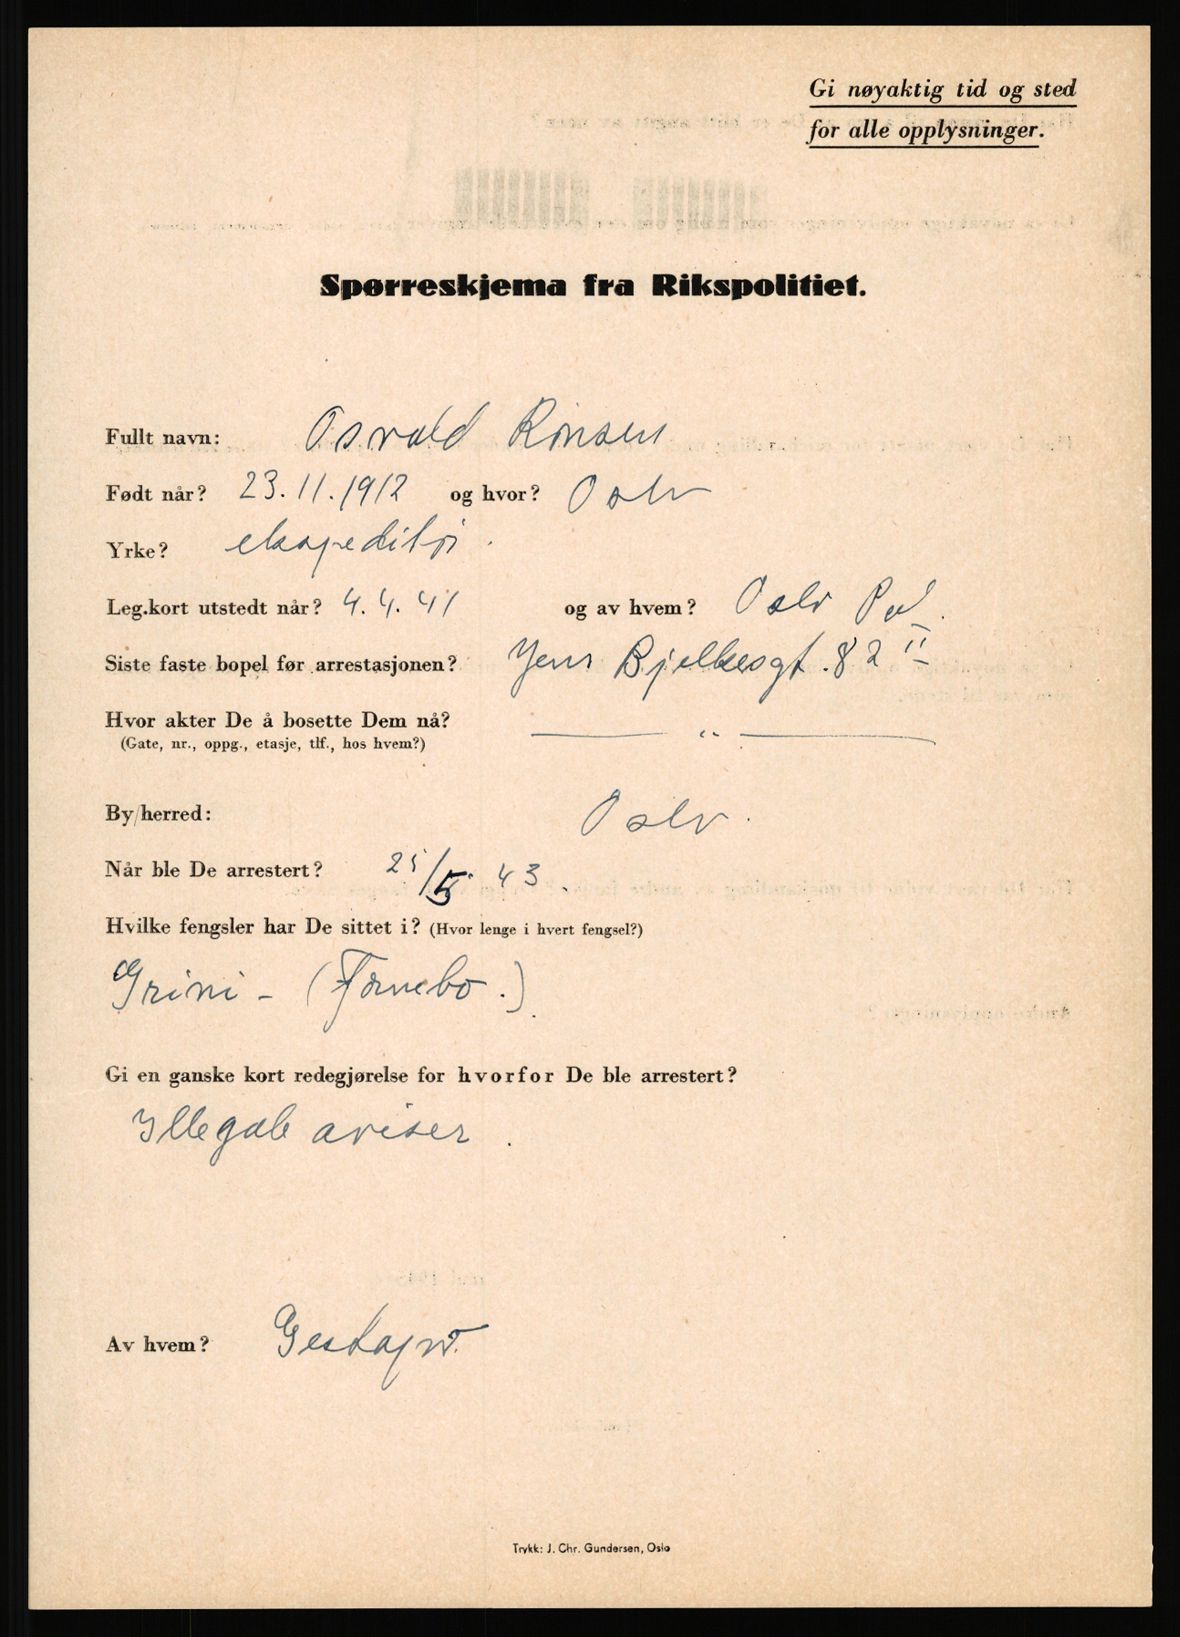 Gi nøyaktig tid og sted
for alle opplysninger.
Spørreskjema fra Rikspolitiet.
Fullt navn: Osvald Rønsen
Født når? 23.11.1912 og hvor? Oslo
Yrke? ekspeditør.
Leg.kort utstedt når? 4.4.41 og av hvem? Oslo Pol.
Siste faste bopel før arrestasjonen? Jens Bjelkesgt. 82 II
Hvor akter De å bosette Dem nå? — " —
(Gate, nr., oppg., etasje, tlf., hos hvem?)
By/herred: Oslo.
Når ble De arrestert? 25/5 43.
Hvilke fengsler har De sittet i? (Hvor lenge i hvert fengsel?)
Grini – (Fornebo.)
Gi en ganske kort redegjørelse for hvorfor De ble arrestert?
Illegale aviser.
Av hvem? Gestapo.
Trykk: J. Chr. Gundersen, Oslo